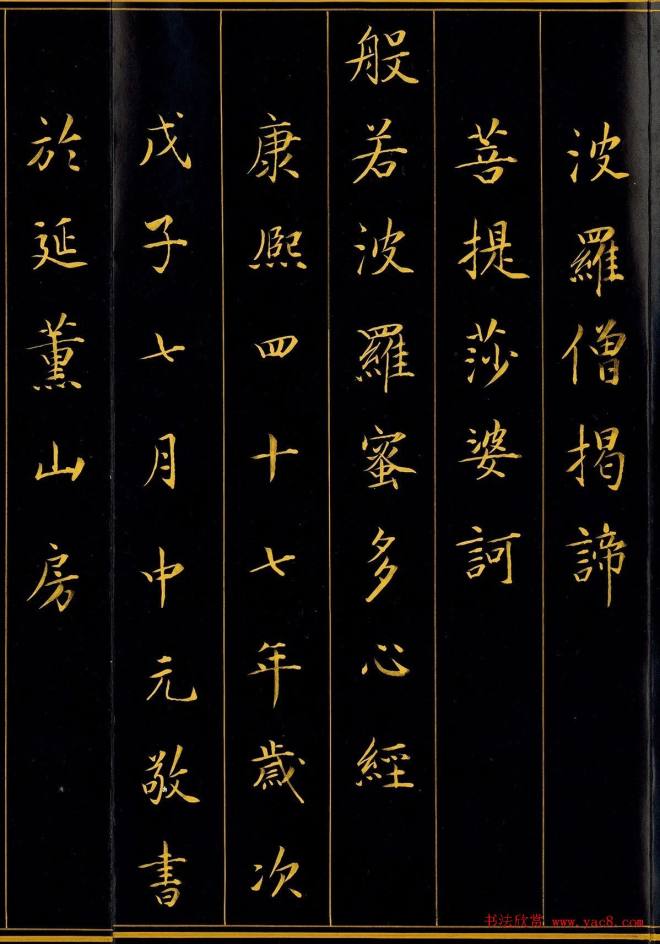 波羅僧揭諦
菩提莎婆訶
般若波羅蜜多心經
康熙四十七年歲次
戊子七月中元敬書
於延薰山房
书法欣赏 www.yac8.com